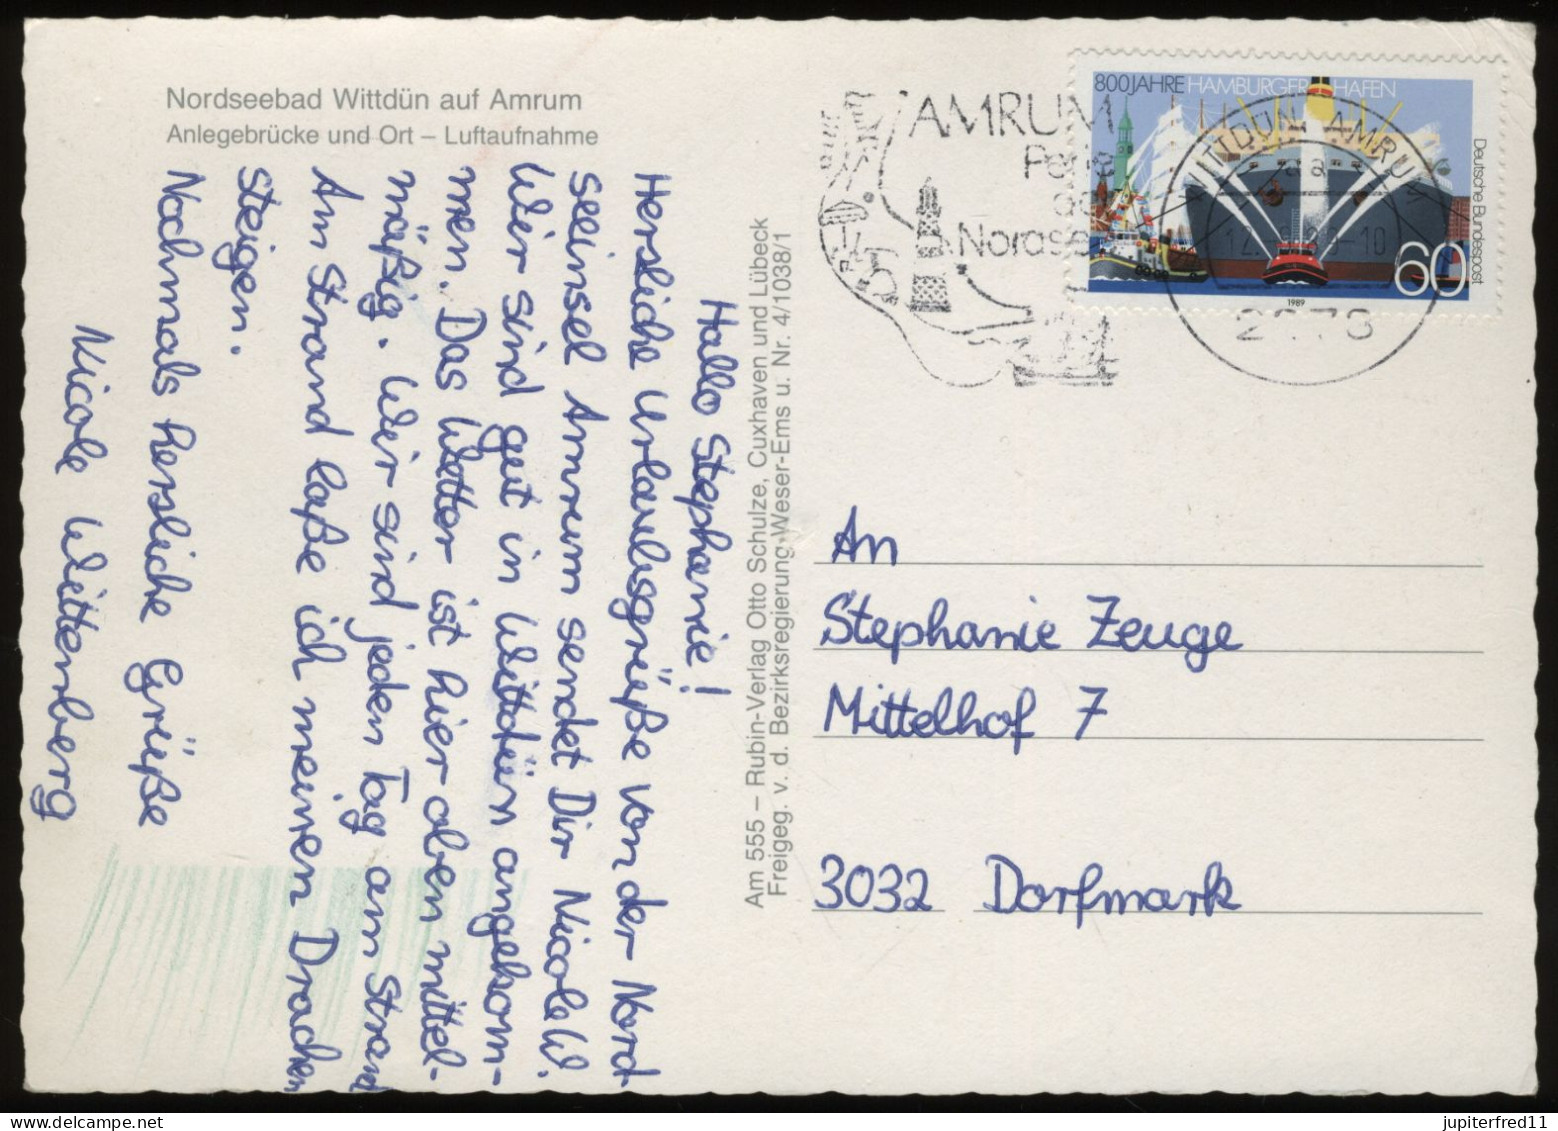 Nordseebad Wittdün auf Amrum
Anlegebrücke und Ort – Luftaufnahme
Hallo Stephanie!
Hersliche Urlaubsgrüße von der Nord-
seeinsel Amrum sendet Dir Nicole W.
Wir sind gut in Wittdün angekom-
men. Das Wetter ist hier oben mittel-
mäßig. Wir sind jeden Tag am Strand
Am Strand laße ich meinen Drachen
steigen.
Nochmals hersliche Grüße
Nicole Wittenberg
Am 555 – Rubin-Verlag Otto Schulze, Cuxhaven und Lübeck
Freigeg. v. d. Bezirksregierung Weser-Ems u. Nr. 4/1038/1
AMRUM
Perle
der
Nordsee
800 JAHRE HAMBURGER HAFEN
Deutsche Bundespost
60
1989
WITTDÜN, AMRUM
An
Stephanie Zeuge
Mittelhof 7
3032 Dorfmark
jupiterfred11